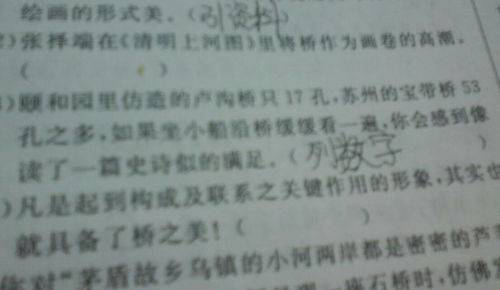 绘画的形式美。(引资料)
)张择端在《清明上河图》里将桥作为画卷的高潮。
( )
)颐和园里仿造的卢沟桥只17孔,苏州的宝带桥53
孔之多,如果坐小船沿桥缓缓看一遍,你会感到像
读了一篇史诗似的满足。(列数字)
)凡是起到构成及联系之关键作用的形象,其实也
就具备了桥之美!( )
你对“茅盾故乡乌镇的小河两岸都是密密的芦
一座石桥时,仿佛